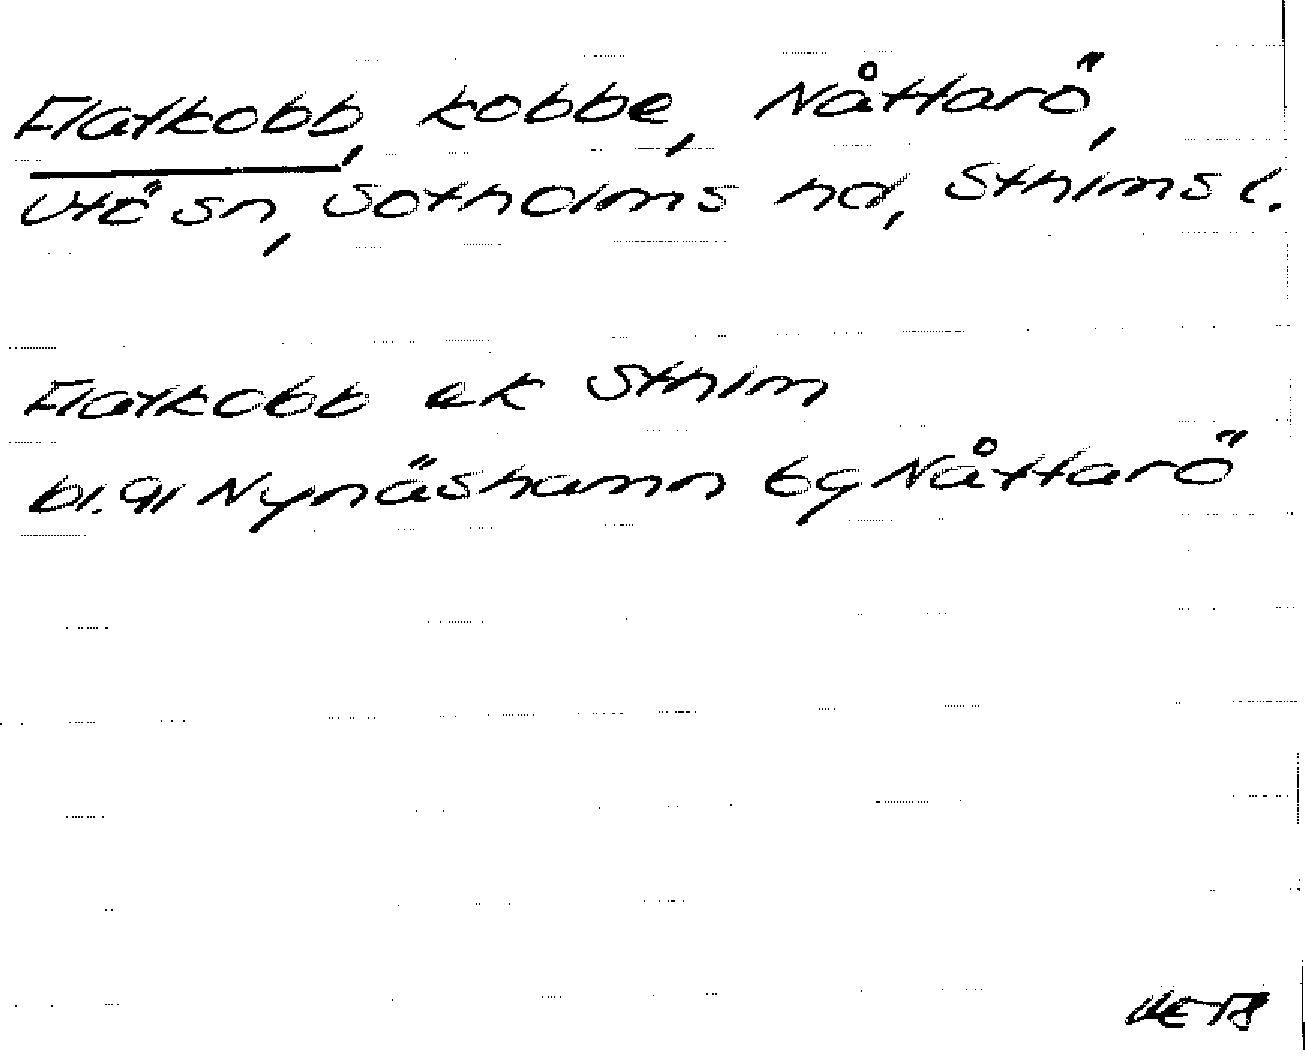 Flatkobb, kobbe, Nåttarö,
Utö sn, Sotholms hd, Sthlms l.
Flatkobb ek Sthlm
bl. 91 Nynäshamn 6g Nåttarö